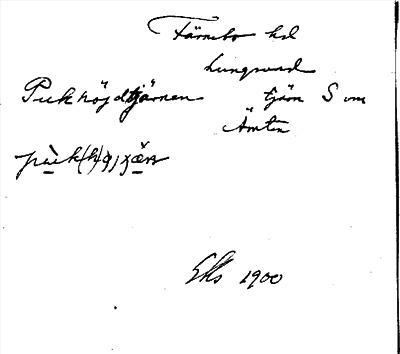 Färnebo hd
Lungsund
Pukhöjdtjärnen tjärn S om
Ämten
Eks 1900